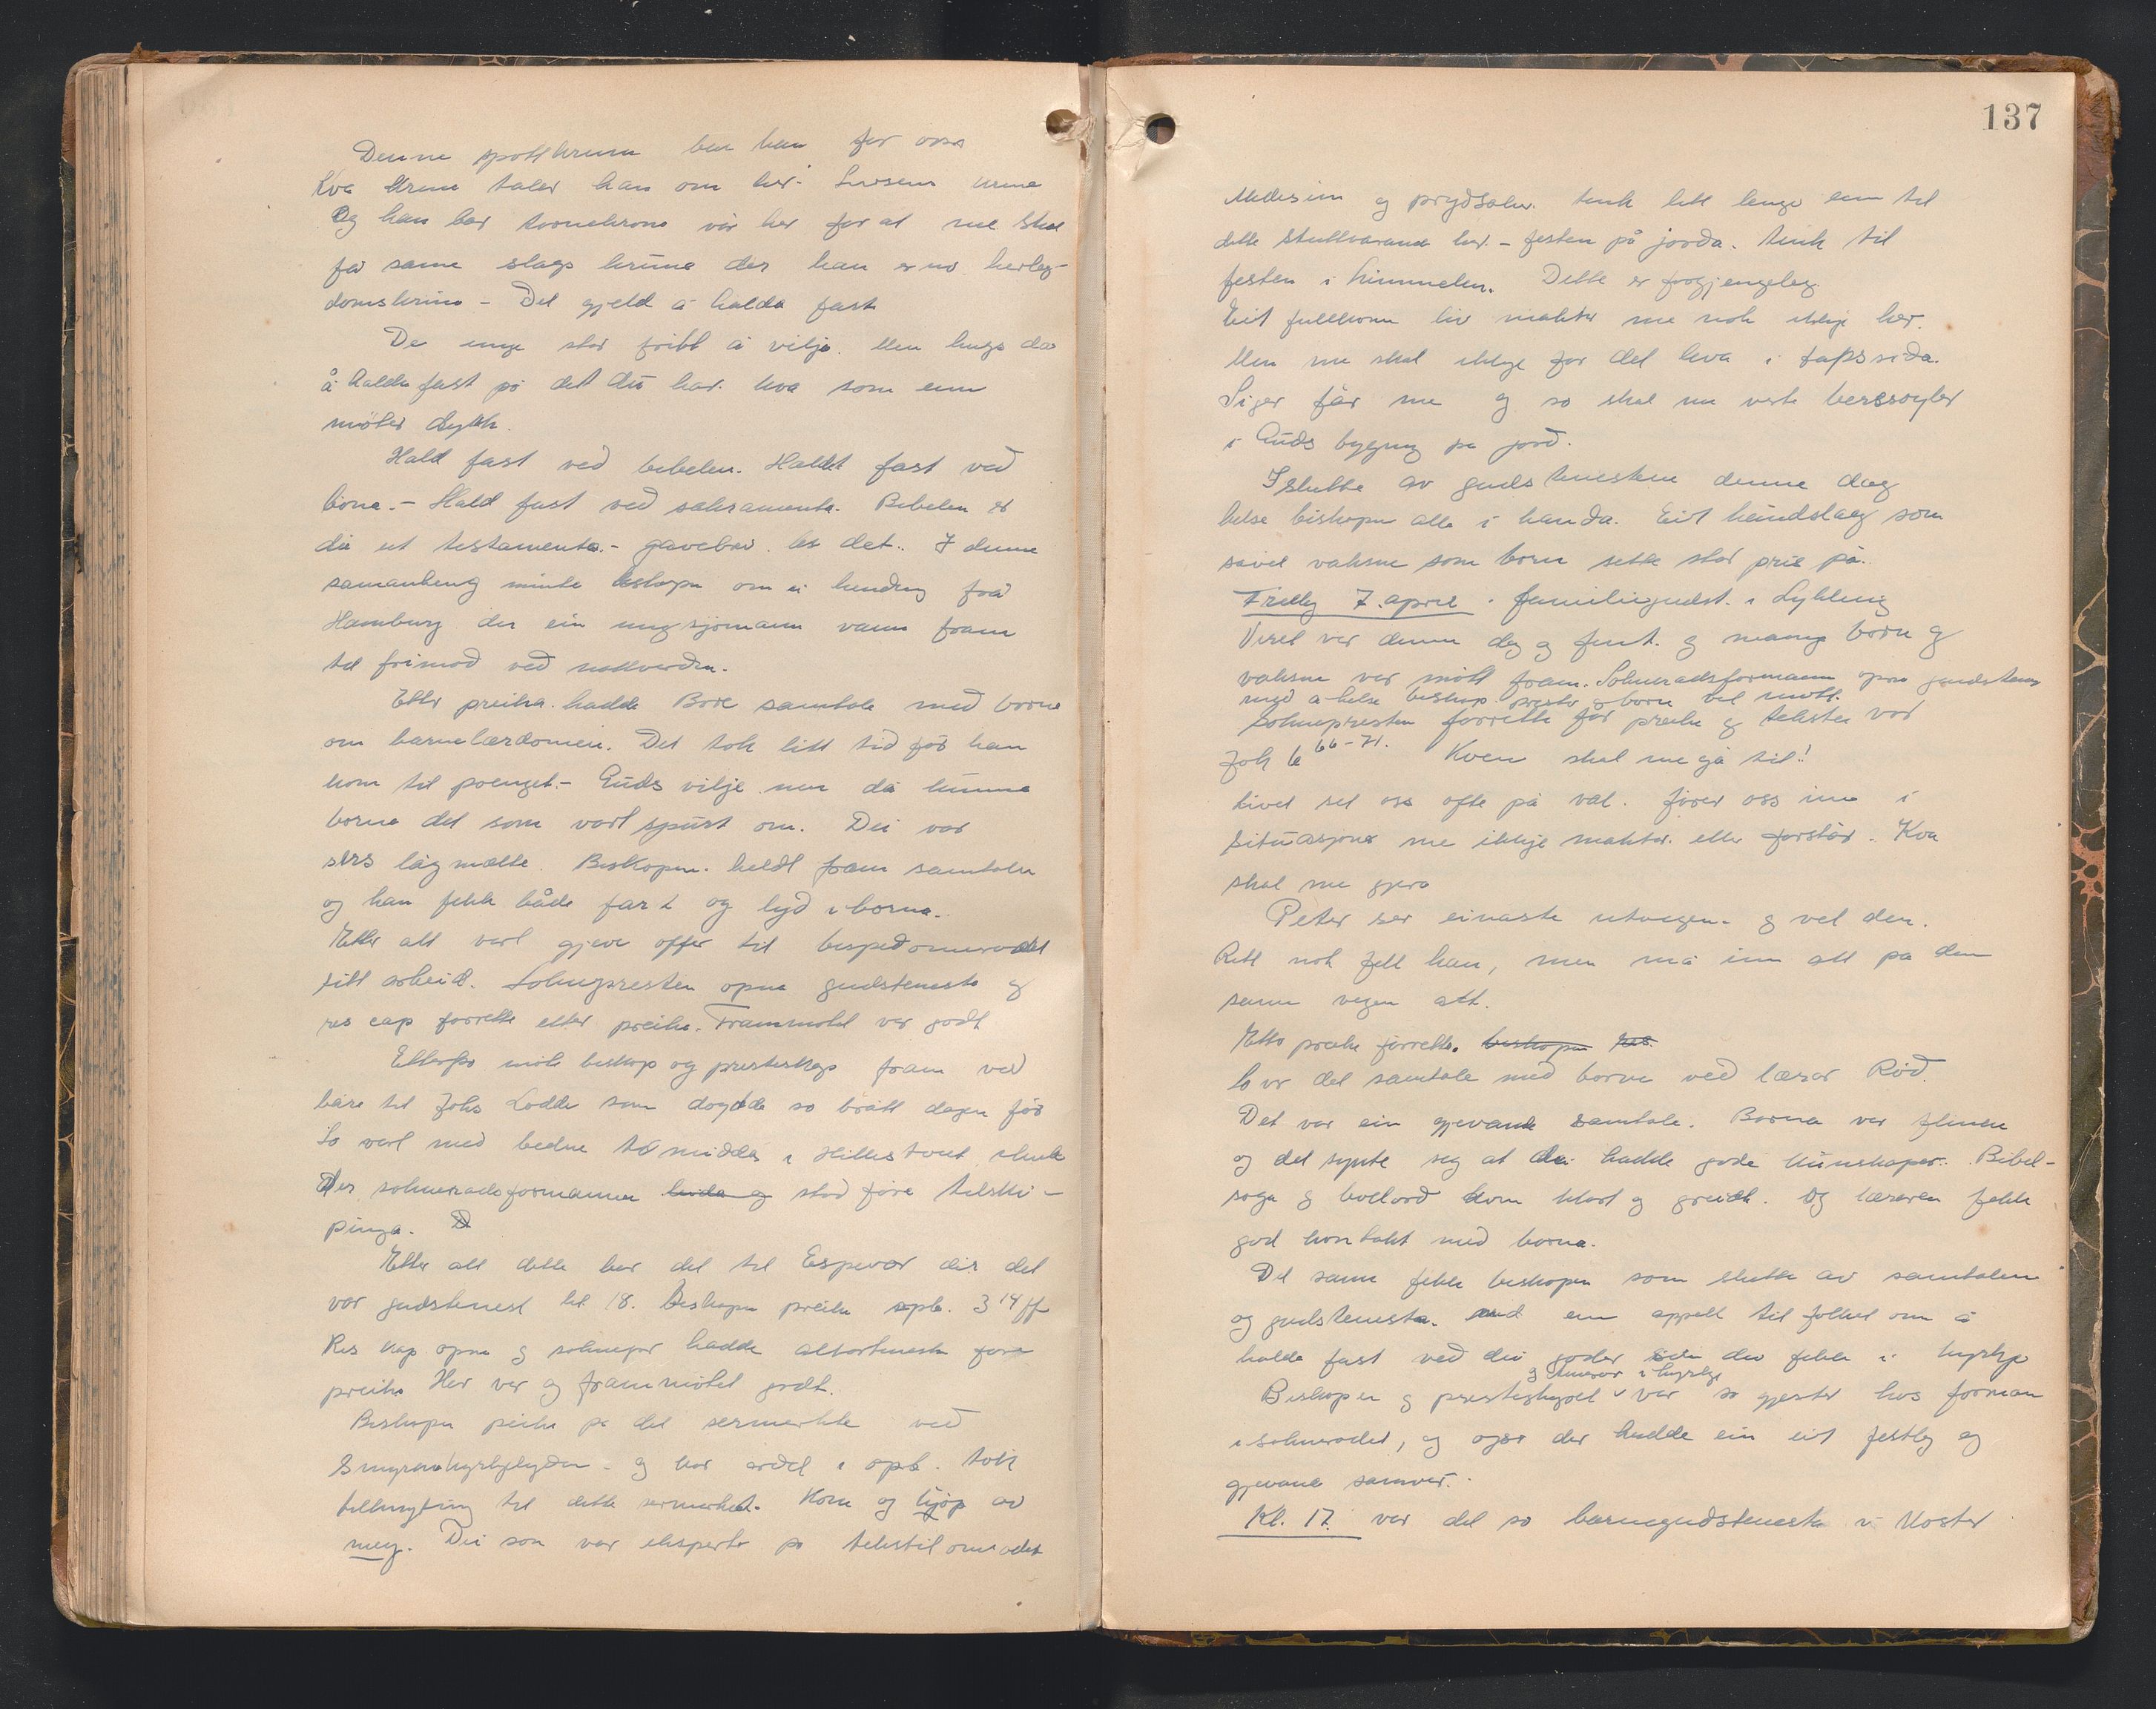 Denne spottkruna bar han for oss
Kva kruna talar han om her. Livsens kruna
Og han bar tornekruna vår her for at me skal
få same slags kruna der han er no herleg-
domskruna - Det gjeld å halda fast
De unge står fritt å vilja. Men hugs da
å halda fast på det du har. kva som enn
møter dykk.
Hald fast ved bibelen. Haldt fast ved
bøna. - Hald fast ved sakramenta. Bibelen er
di et testamente. - gavebrev. les det. I denne
samanheng minte biskopen om ei hending frå
Hamburg der ein ung sjømann vann fram
til frimod ved nattverden.
Etter preika hadde Bore samtale med borna
om barnelærdomen. Det tok litt tid før han
kom til poenget. - Guds vilje men då kunne
borna det som vart spurt om. Dei var
sers lågmælte. Biskopen heldt fram samtalen
og han fekk både fart og lyd i borna.
Etter alt vart gjeve offer til bispedømerådet
sitt arbeid. Sokneprester opna gudstenesta og
res cap forretta etter preika. Frammøtet var godt
Etterpå møtte biskop og presteskap fram ved
båra til Johs Lodde som døydde so brått dagen før
So vart me bedne til middag i Hillestveit
Der soknerådsformannen stod føre tilski-
pinga.
Etter alt dette bar det til Espevær der det
var gudstenest kl 18. Biskopen preika opb. 3 14 ff
Res kap opna og soknepr hadde altartenesta føre
preika Her var og frammøtet godt.
Biskopen peika på det sermerkte ved
Smyrnakyrkjelyden - og kor ordet i opb. tok
tilknyting til dette sermerket. Kom og kjøp av
meg. Dei som var eksperter på tekstilområdet
137
Medesin og prydsaker. tenk litt lenge enn til
dette stuttvarande her. - festen på jorda. tenk til
festen i himmelen. Dette er forgjengeleg.
Eit fullkome liv maktar me nok ikkje her.
Men me skal ikkje for det leva i tapssida.
Siger får me og so skal me verta beresøyler
i Guds bygning på jord.
I slutten av gudstenesten denne dag
helsa biskopen alle i handa. Eit handslag som
såvel vaksne som born sette stor pris på.
Fredag 7. april. familiegudst. i Lykling
Veret var denne dag og fint. og mange born og
vaksne var møtt fram. Soknerådsformann opna gudstenesta
med å helsa biskop prestar og born vel møtt.
Soknepresten forretta før preika og teksten var
Joh 6 66-71. Kven skal me gå til!
Livet set oss ofte på val. fører oss inn i
situasjonar me ikkje maktar eller forstår. Kva
skal me gjera
Peter ser einaste utvegen. og vel den.
Rett nok fell han, men må inn att på den
same vegen att.
Etter preika forretta biskopen res.
So var det samtale med borna ved lærar Rød.
Det var ein gjevande samtale. Borna var flinke
og det synte seg at dei hadde gode kunnskapar. Bibel-
soga og bodord kom klart og greidt. Og læraren fekk
god kontakt med borna.
Det same fekk biskopen som slutta av samtalen
og gudstenesta. med ein appell til folket om å
halda fast ved dei goder dei fekk i kyrkja
Biskopen og prestaskapet og tenarar i kyrkja var so gjester hos forman
i soknerådet, og også der hadde ein eit festleg og
gjevande samvær.
Kl. 17. var det so barnegudstenesta i Moster